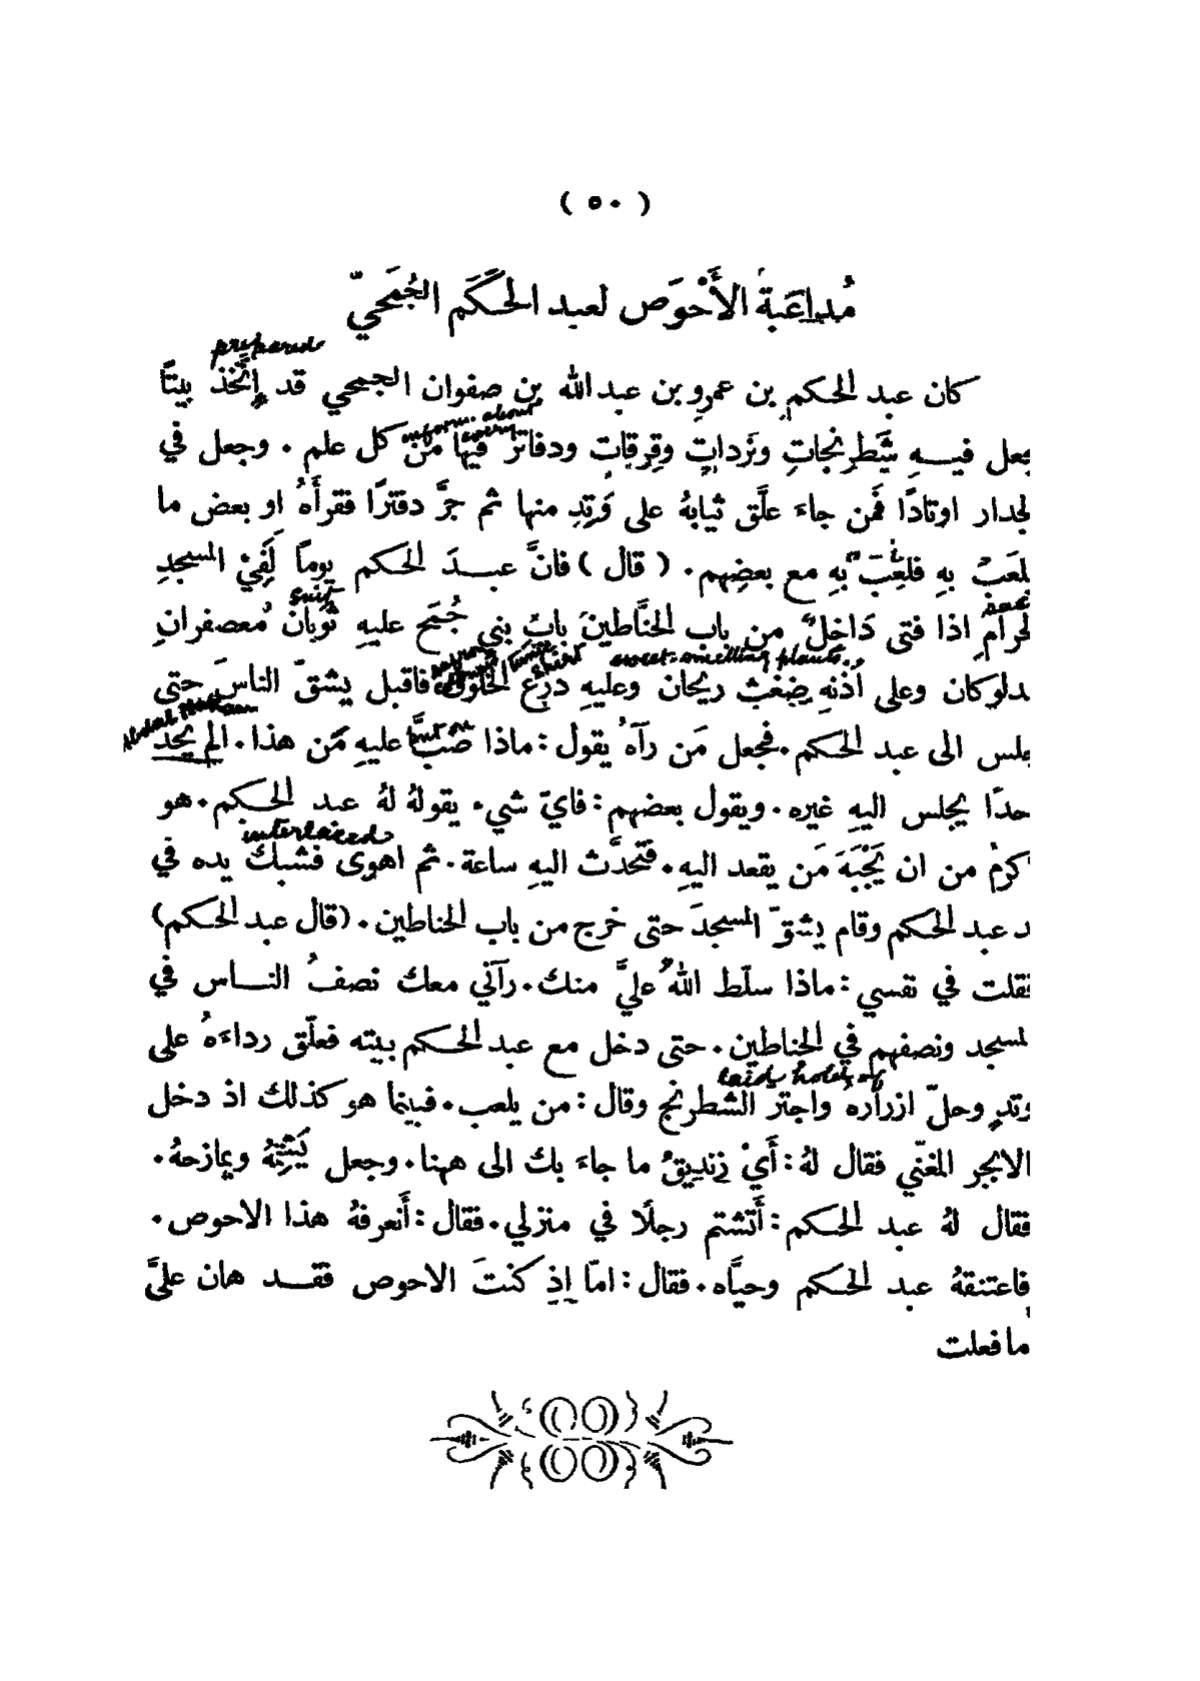 ( ٥٠ )
مُداعَبةُ الأَحْوَص لعبد الحَكَم الجُمَحيّ
prepared
كان عبد الحكم بن عمرو بن عبدالله بن صفوان الجمحي قد إتَّخذ بيتًا
inform. about every
جعل فيهِ شَطرنجاتٍ ونَرداتٍ وقِرقاتٍ ودفاتر فيها من كل علم . وجعل في
لجدار اوتادًا فمن جاءَ علَّق ثيابهُ على وَتِدٍ منها ثم جرَّ دفترًا فقرأَهُ او بعض ما
لعَبُ بهِ فلعِب بهِ مع بعضِهم . ( قال ) فانَّ عبدَ الحكم يومًا لَفِيْ المسجدِ
suit
لحرامِ اذا فتى دَاخِلٌ من باب الحنَّاطينَ بابِ بني جُمَح عليهِ ثَوبان مُعصفرانِ
shirt sweet-smelling plants
دلوكان وعلى أُذنهِ ضِغْث ريحان وعليهِ درْع الخَلوق فاقبل يشقّ الناسَ حتى
Abdul Hakam put on
جلس الى عبد الحكم . فجعل مَن رآهُ يقول : ماذا صُبَّ عليهِ مَن هذا . الم يجد
حدًا يجلس اليهِ غيره . ويقول بعضهم : فايّ شيء يقولهُ لهُ عبد الحكم . هو
interlaced
كرمُ من ان يَجْبَهَ مَن يقعد اليهِ . فتحدَّث اليهِ ساعة . ثم اهوى فشبك يده في
د عبد الحكم وقام يشقّ المسجدَ حتى خرج من باب الحناطين . (قال عبد الحكم)
فقلت في نفسي : ماذا سلّط اللهُ عليَّ منك . رآني معك نصفُ الناس في
لمسجد ونصفهم في الحناطين . حتى دخل مع عبد الحكم بيته فعلّق رداءَهُ على
laid hold of
وتدٍ وحلّ ازراره واجترّ الشطرنج وقال : من يلعب . فبينما هو كذلك اذ دخل
الابجر المغنّي فقال لهُ : أَيْ زنديقُ ما جاءَ بك الى ههنا . وجعل يَشْتِمهُ ويمازحهُ .
فقال لهُ عبد الحكم : أَتشتم رجلًا في منزلي . فقال : أَنعرفهُ هذا الاحوص .
فاعتنقهُ عبد الحكم وحيَّاه . فقال : امّا إذ كنتَ الاحوص فقد هان عليَّ
ما فعلت